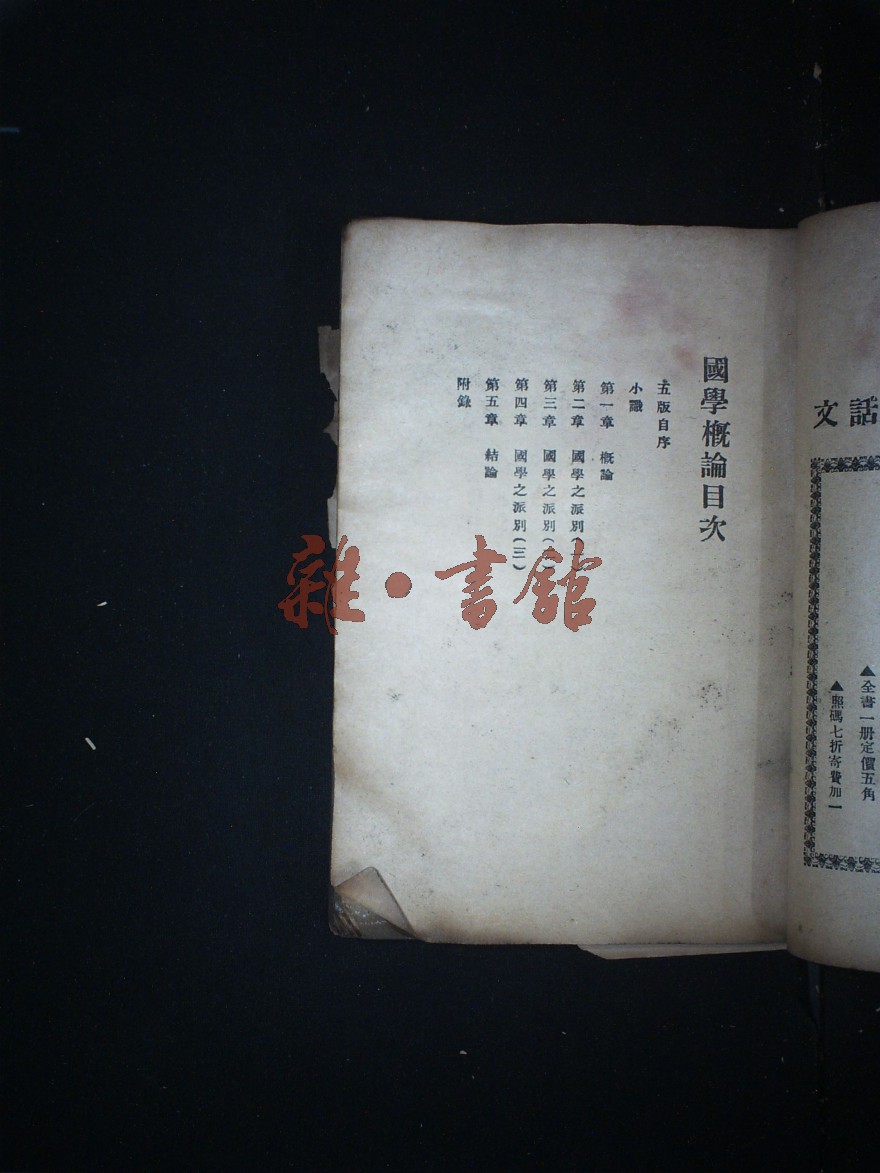 話
文
▲全書一册定價五角
▲照碼七折寄費加一
國學概論目次
五版自序
小識
第一章 概論
第二章 國學之派別(
第三章 國學之派別(
第四章 國學之派別(三)
第五章 結論
附錄
雜·書館